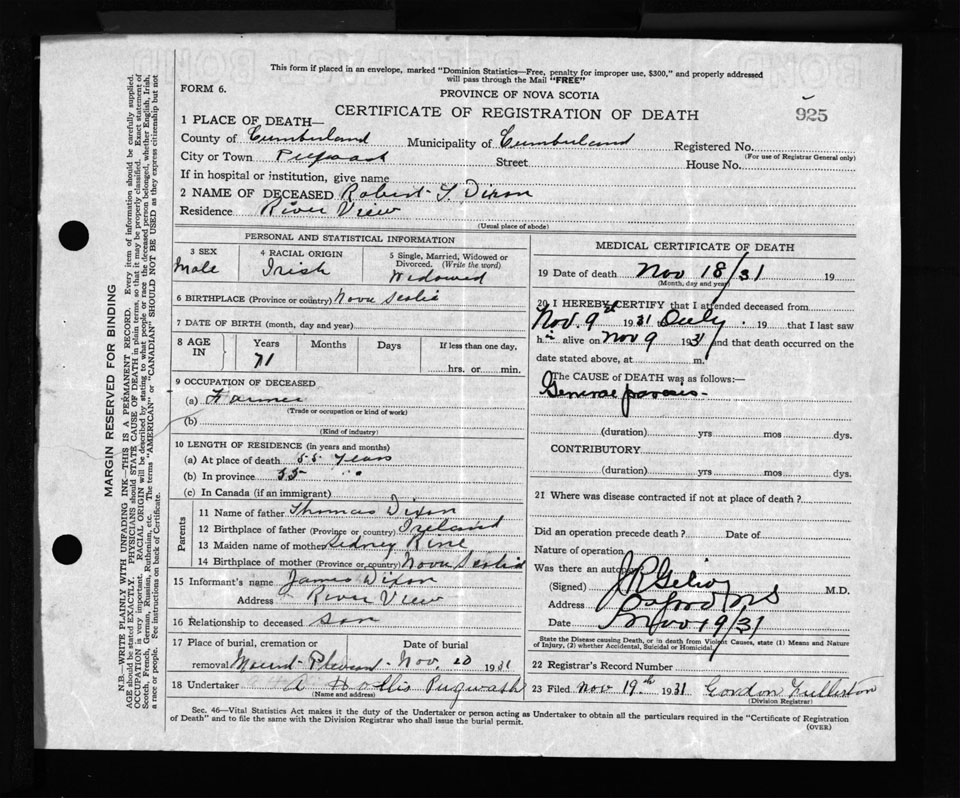 This form if placed in an envelope, marked "Dominion Statistics—Free, penalty for improper use, $300," and properly addressed
will pass through the Mail "FREE"
FORM 6.
PROVINCE OF NOVA SCOTIA
CERTIFICATE OF REGISTRATION OF DEATH
925
1 PLACE OF DEATH—
County of Cumberland Municipality of Cumberland Registered No.
(For use of Registrar General only)
City or Town Street House No.
If in hospital or institution, give name
2 NAME OF DECEASED Robert Dixon
Residence River View
(Usual place of abode)
PERSONAL AND STATISTICAL INFORMATION
3 SEX 4 RACIAL ORIGIN 5 Single, Married, Widowed or
Divorced. (Write the word)
Male Irish Widowed
6 BIRTHPLACE (Province or country) Nova Scotia
7 DATE OF BIRTH (month, day and year)
8 AGE IN Years Months Days If less than one day.
71
hrs. or min.
9 OCCUPATION OF DECEASED
(a) Farmer
(Trade or occupation or kind of work)
(b)
(Kind of industry)
10 LENGTH OF RESIDENCE (in years and months)
(a) At place of death 55 years
(b) In province 55 "
(c) In Canada (if an immigrant)
Parents
11 Name of father Thomas Dixon
12 Birthplace of father (Province or country) Ireland
13 Maiden name of mother
14 Birthplace of mother (Province or country) Nova Scotia
15 Informant's name James Dixon
Address River View
16 Relationship to deceased son
17 Place of burial, cremation or removal Date of burial
Nov. 20 1931
18 Undertaker A Hollis Pugwash
(Name and address)
MEDICAL CERTIFICATE OF DEATH
19 Date of death Nov 18/31 19
(Month, day and year)
20 I HEREBY CERTIFY that I attended deceased from
Nov. 9 1931 19 that I last saw
h im alive on Nov 9 1931 and that death occurred on the
date stated above, at m.
The CAUSE of DEATH was as follows:—
General
(duration) yrs mos dys.
CONTRIBUTORY
(duration) yrs mos dys.
21 Where was disease contracted if not at place of death?
Did an operation precede death? Date of
Nature of operation
Was there an autopsy
(Signed) M.D.
Address Oxford NS
Date Nov 19/31
State the Disease causing Death, or in death from Violent Causes, state (1) Means and Nature
of Injury, (2) whether Accidental, Suicidal or Homicidal.
22 Registrar's Record Number
23 Filed Nov 19th 1931 Gordon
(Division Registrar)
Sec. 46—Vital Statistics Act makes it the duty of the Undertaker or person acting as Undertaker to obtain all the particulars required in the "Certificate of Registration
of Death" and to file the same with the Division Registrar who shall issue the burial permit.
(OVER)
MARGIN RESERVED FOR BINDING
N.B.—WRITE PLAINLY WITH UNFADING INK—THIS IS A PERMANENT RECORD. Every item of information should be carefully supplied.
AGE should be stated EXACTLY. PHYSICIANS should STATE CAUSE OF DEATH in plain terms, so that it may be properly classified. Exact statement of
OCCUPATION is very important. RACIAL ORIGIN will be described by stating to what people or race the deceased person belonged, whether English, Irish,
Scotch, French, German, Russian, Ruthenian, etc. The terms "AMERICAN" or "CANADIAN" SHOULD NOT BE USED as they express citizenship but not
a race or people. See instructions on back of Certificate.